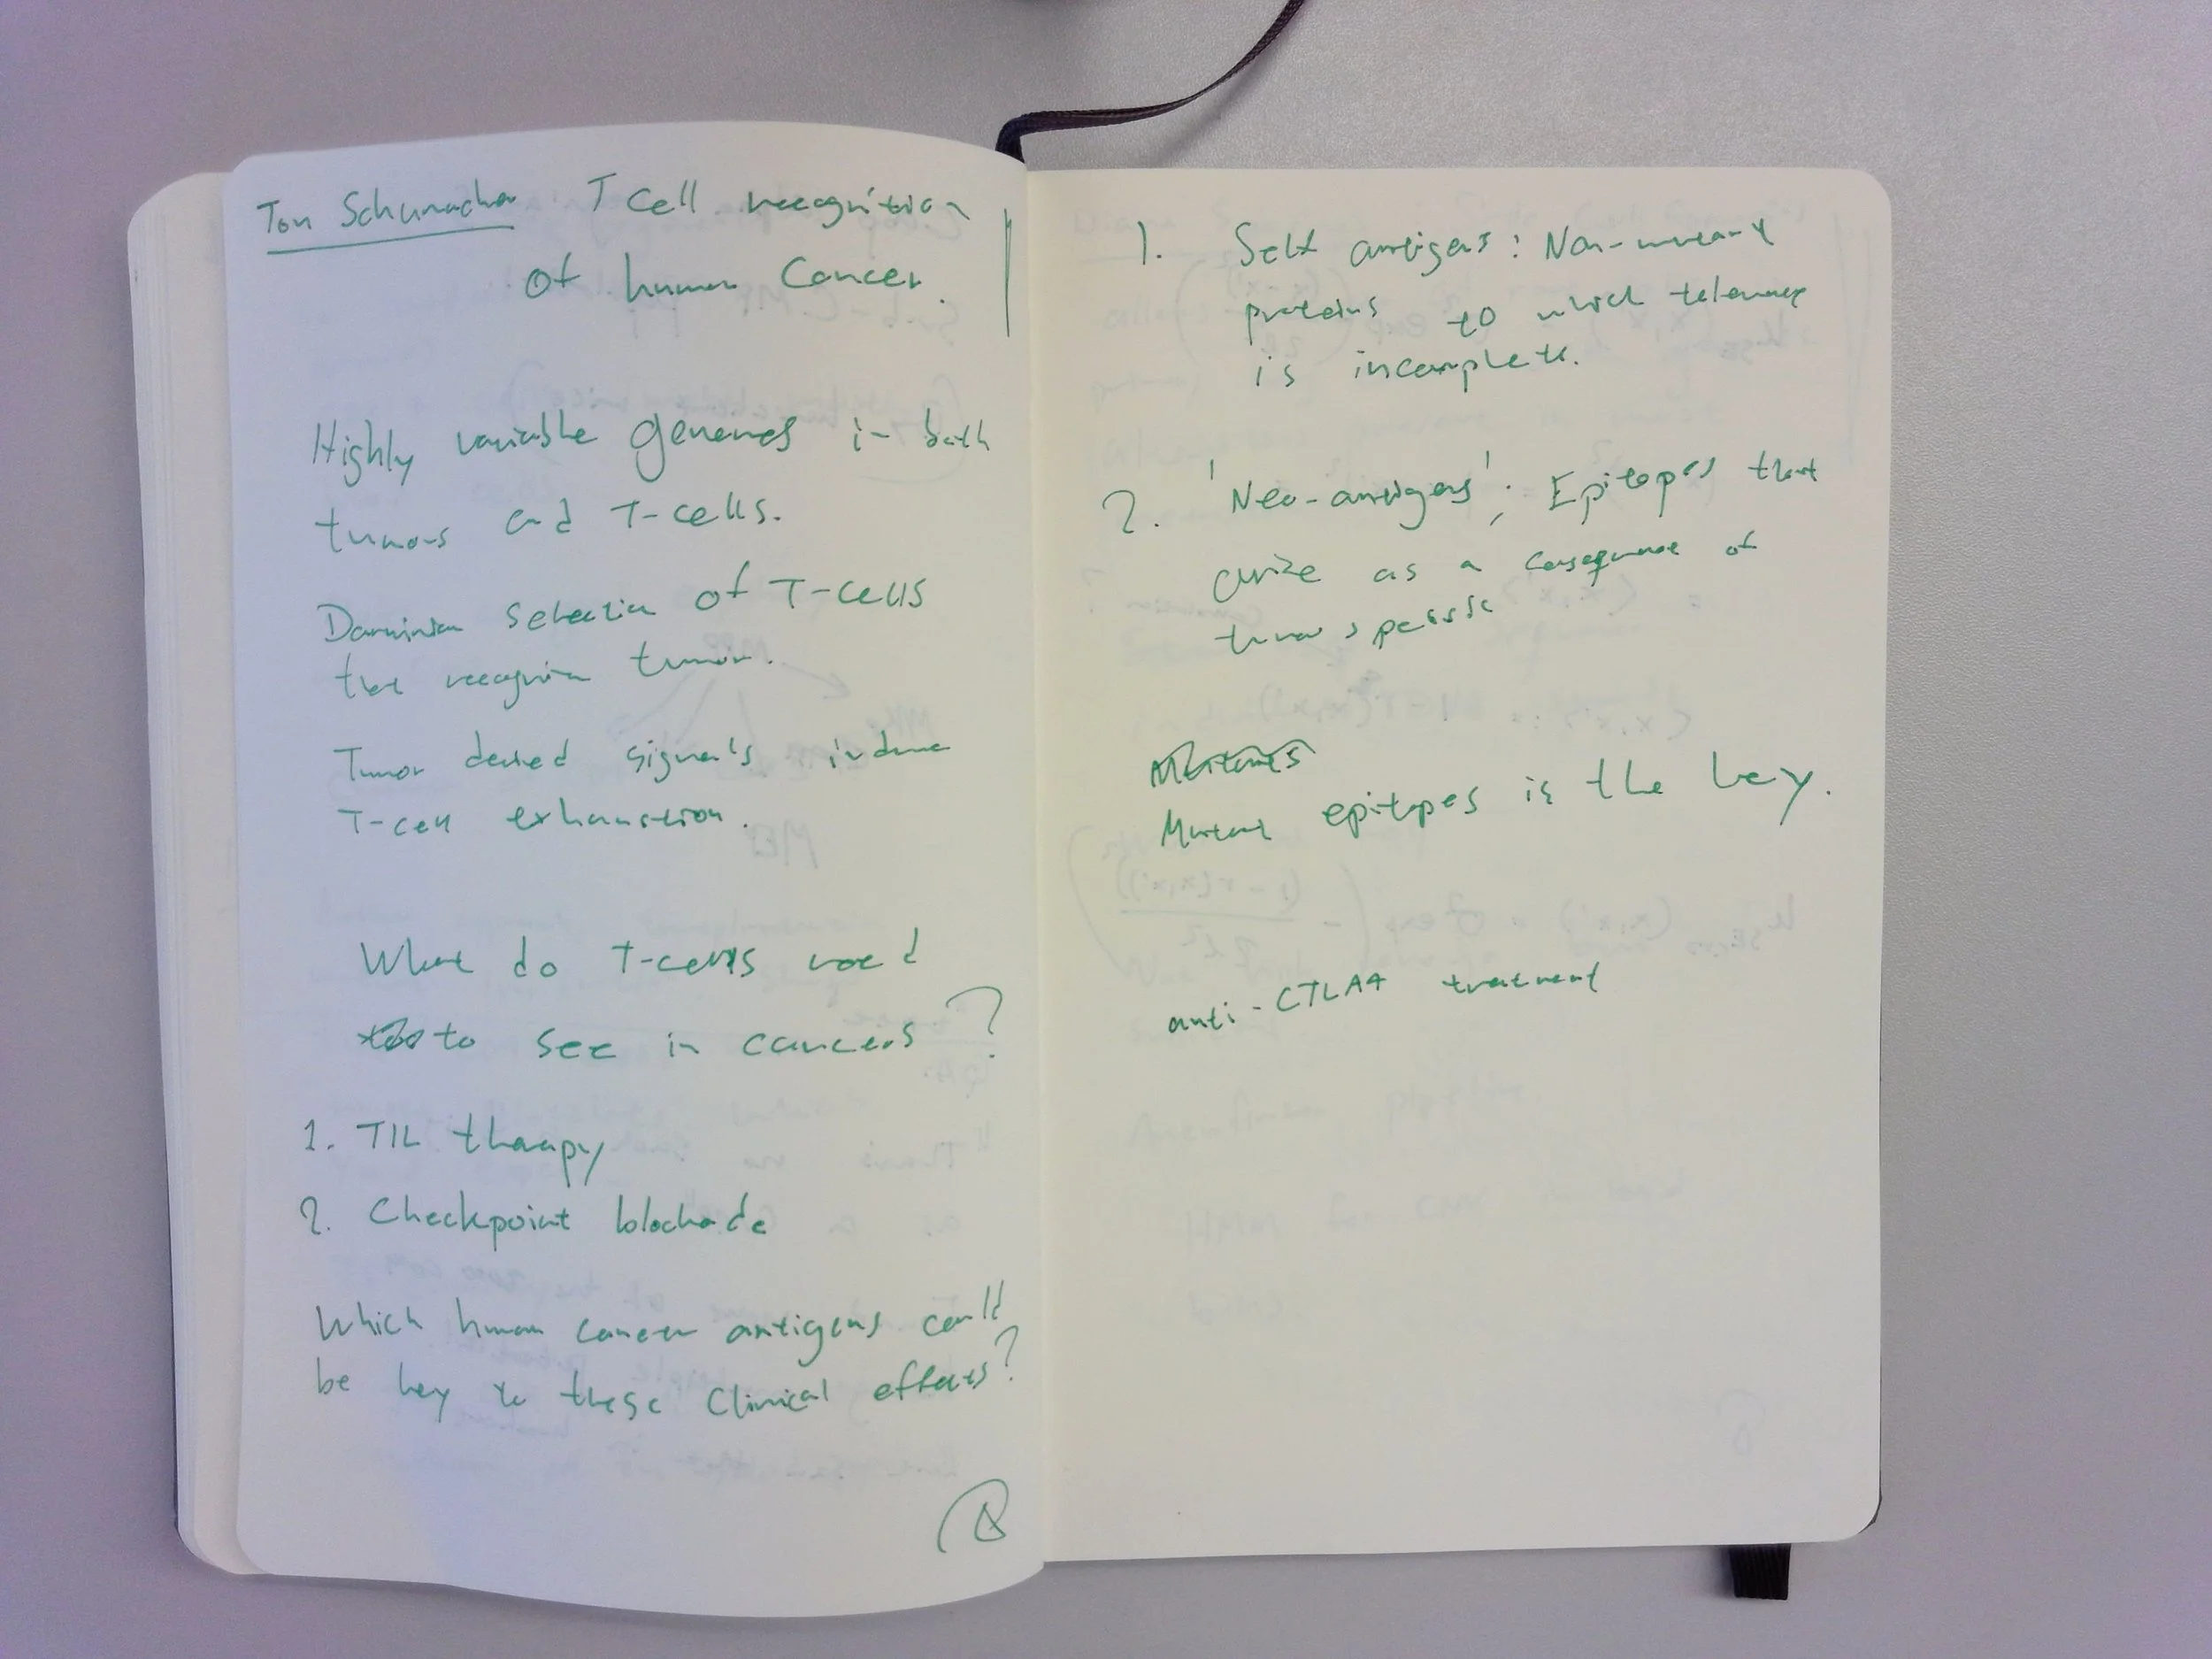 Ton Schumacher T Cell recognition
of human Cancer.
Highly variable genomes in both
tumors and T-cells.
Darwinian selection of T-cells
that recognize tumor.
Tumor derived signals induce
T-cell exhaustion.
What do T-cells need
to see in cancers?
1. TIL therapy
2. Checkpoint blockade
Which human cancer antigens could
be key to these clinical effects?
1. Self antigens: Non-mutant
proteins to which tolerance
is incomplete.
2. 'Neo-antigens': Epitopes that
arise as a consequence of
tumor specific
Mutant epitopes is the key.
anti-CTLA4 treatment